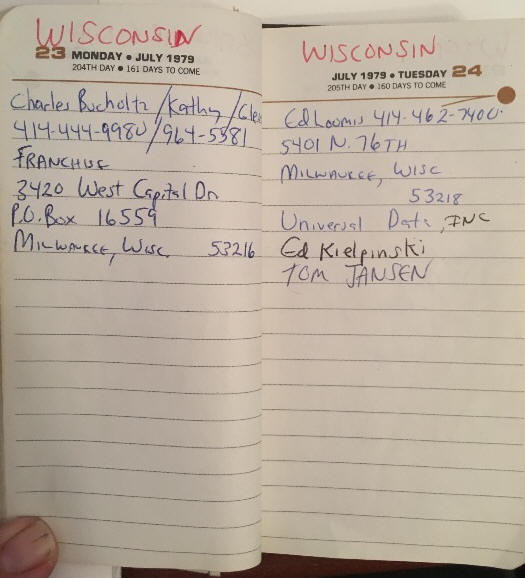 WISCONSIN
23 MONDAY • JULY 1979
204TH DAY • 161 DAYS TO COME
Charles Bucholtz / Kathy /
414-444-9980 / 964-5381
FRANCHISE
3420 West Capital Dr.
P.O. Box 16559
MILWAUKEE, WISC. 53216
WISCONSIN
JULY 1979 • TUESDAY 24
205TH DAY • 160 DAYS TO COME
Ed Loomis 414-462-7400
5401 N. 76TH
MILWAUKEE, WISC
53218
Universal Data, INC
Ed Kielpinski
TOM JANSEN